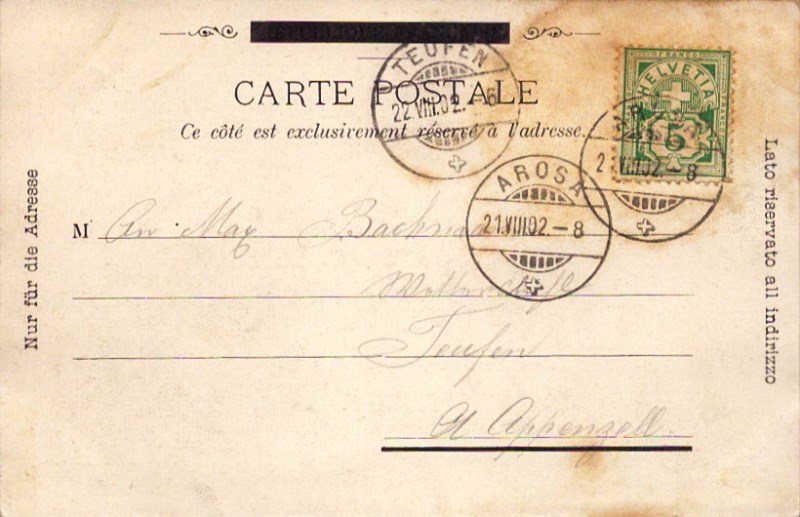 TEUFEN
22.VIII.02.-6
CARTE POSTALE
Ce côté est exclusivement réservé à l'adresse.
HELVETIA
FRANCO
5
2 VIII.02.-8
AROSA
21.VIII.02.-8
M An Max Bachma
Teufen
Ct Appenzell.
Nur für die Adresse
Lato riservato all indirizzo